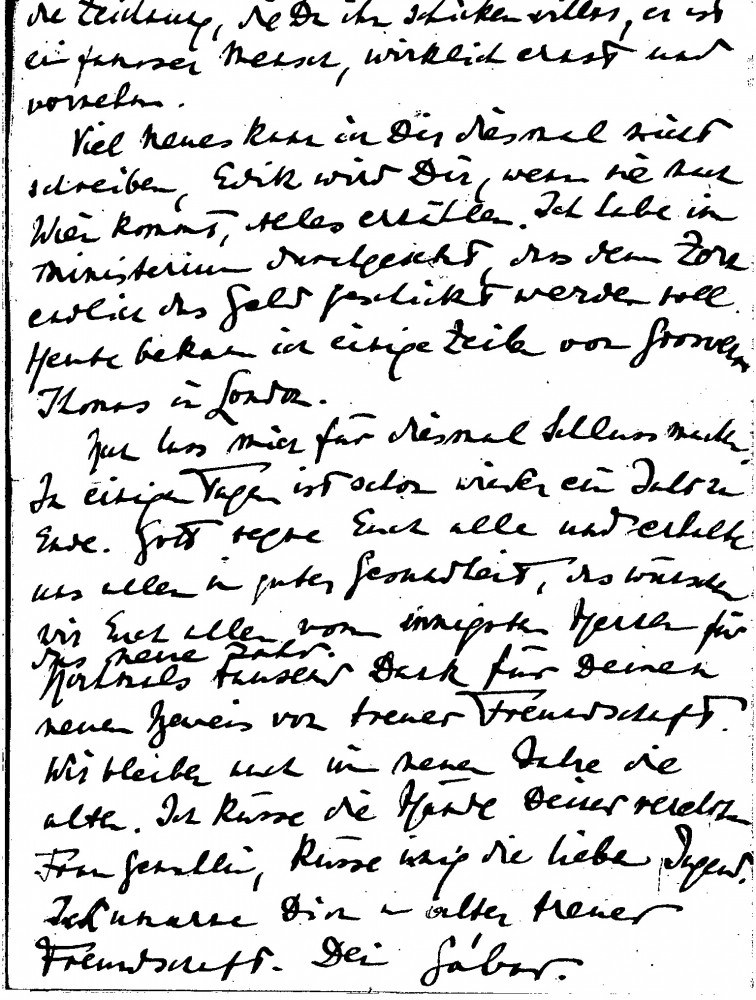 die Zeichnung, die Du ihm schicken willst, er ist
ein famoser Mensch, wirklich ernst und
vornehm.
Viel Neues kann ich Dir diesmal nicht
schreiben, Edith wird Dir, wenn sie nach
Wien kommt, alles erzählen. Ich habe im
Ministerium durchgesetzt, dass dem Zorn
endlich das Geld geschickt werden soll.
Heute bekam ich einige Zeilen von
Thomas in London.
lass mich für diesmal Schluss machen.
In einigen Tagen ist schon wieder ein Jahr zu
Ende. Gott segne Euch alle und erhalte
uns allen in guter Gesundheit, das wünschen
wir Euch allen vom innigsten Herzen für
das neue Jahr.
Nochmals tausend Dank für Deinen
neuen Beweis von treuer Freundschaft.
Wir bleiben auch im neuen Jahre die
alten. Ich küsse die Hände Deiner verehrten
Frau Gemahlin, küsse innig die liebe Jugend.
Ich umarme Dich in alter treuer
Freundschaft. Dein Gábor.